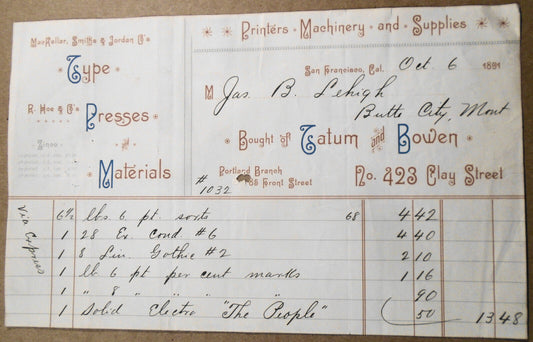 Printers Machinery and Supplies
MacKellar, Smiths & Jordan Co's
Type
R. Hoe & Co's
Presses
and
Materials
San Francisco, Cal. Oct 6 1891
M Jas B. Lehigh
Butte City, Mont
Bought of Tatum and Bowen
Portland Branch
Front Street
No. 423 Clay Street
# 1032
Via Express
6½ lbs. 6 pt. sorts 68 4 42
1 28 Ex Cond #6 4 40
1 8 Lin. Gothic #2 2 10
1 lb 6 pt per cent marks 1 16
1 " 8 " " " " 90
1 Solid Electro "The People" 50 13 48